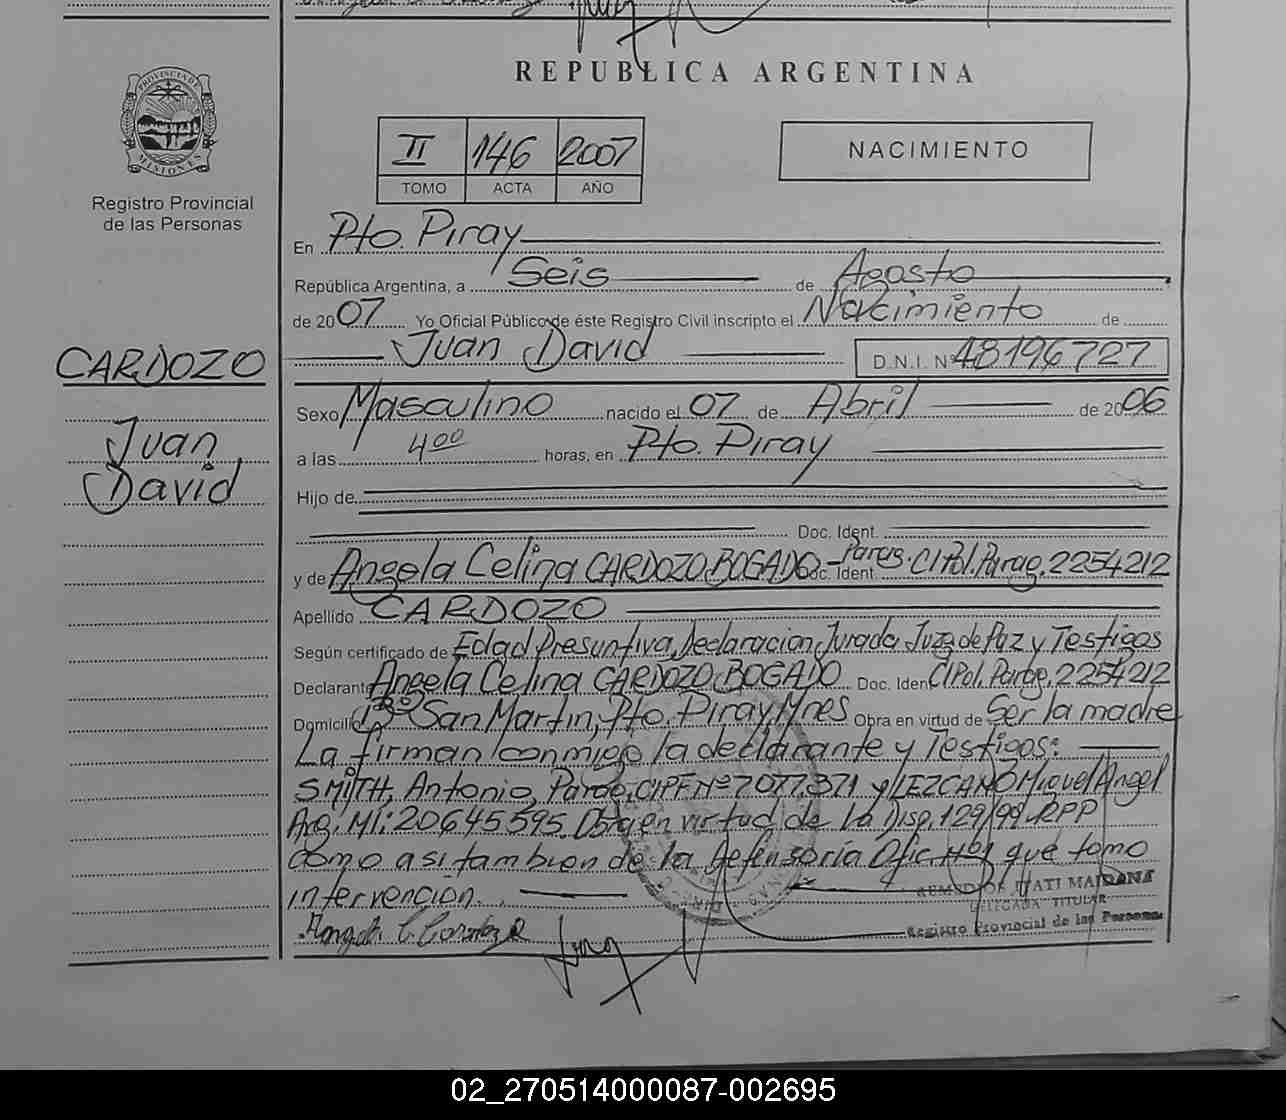 REPUBLICA ARGENTINA
PROVINCIA DE
MISIONES
Registro Provincial
de las Personas
II 146 2007
TOMO ACTA AÑO
NACIMIENTO
En Pto. Piray
República Argentina, a Seis de Agosto
de 2007 Yo Oficial Público de éste Registro Civil inscripto el Nacimiento de
Juan David D.N.I. Nº 48196727
CARDOZO
Juan
David
Sexo Masculino nacido el 07 de Abril de 2006
a las 4⁰⁰ horas, en Pto. Piray
Hijo de
Doc. Ident.
y de Angela Celina CARDOZO BOGADO - Parag. Doc. Ident. CI Pol. Parag. 2254212
Apellido CARDOZO
Según certificado de Edad Presuntiva, Declaracion Jurada Juzg de Paz y Testigos
Declarante Angela Celina CARDOZO BOGADO Doc. Ident. CI Pol. Parag. 2254212
Domicilio Bº San Martin, Pto. Piray Mnes Obra en virtud de Ser la madre
La firman conmigo la declarante y Testigos:
SMITH, Antonio, Parag. CIPF Nº 7077.371 y LEZCANO Miguel Angel
Arg. MI: 20645595. Obra en virtud de la Disp. 129/99-RPP
como asi tambien de la Defensoría Ofic. Nº1 que tomo
intervencion.
REMEDIOS ITATI MAIDANA
DELEGADA TITULAR
Registro Provincial de las Personas
Angela C. Cardozo B
02_270514000087-002695